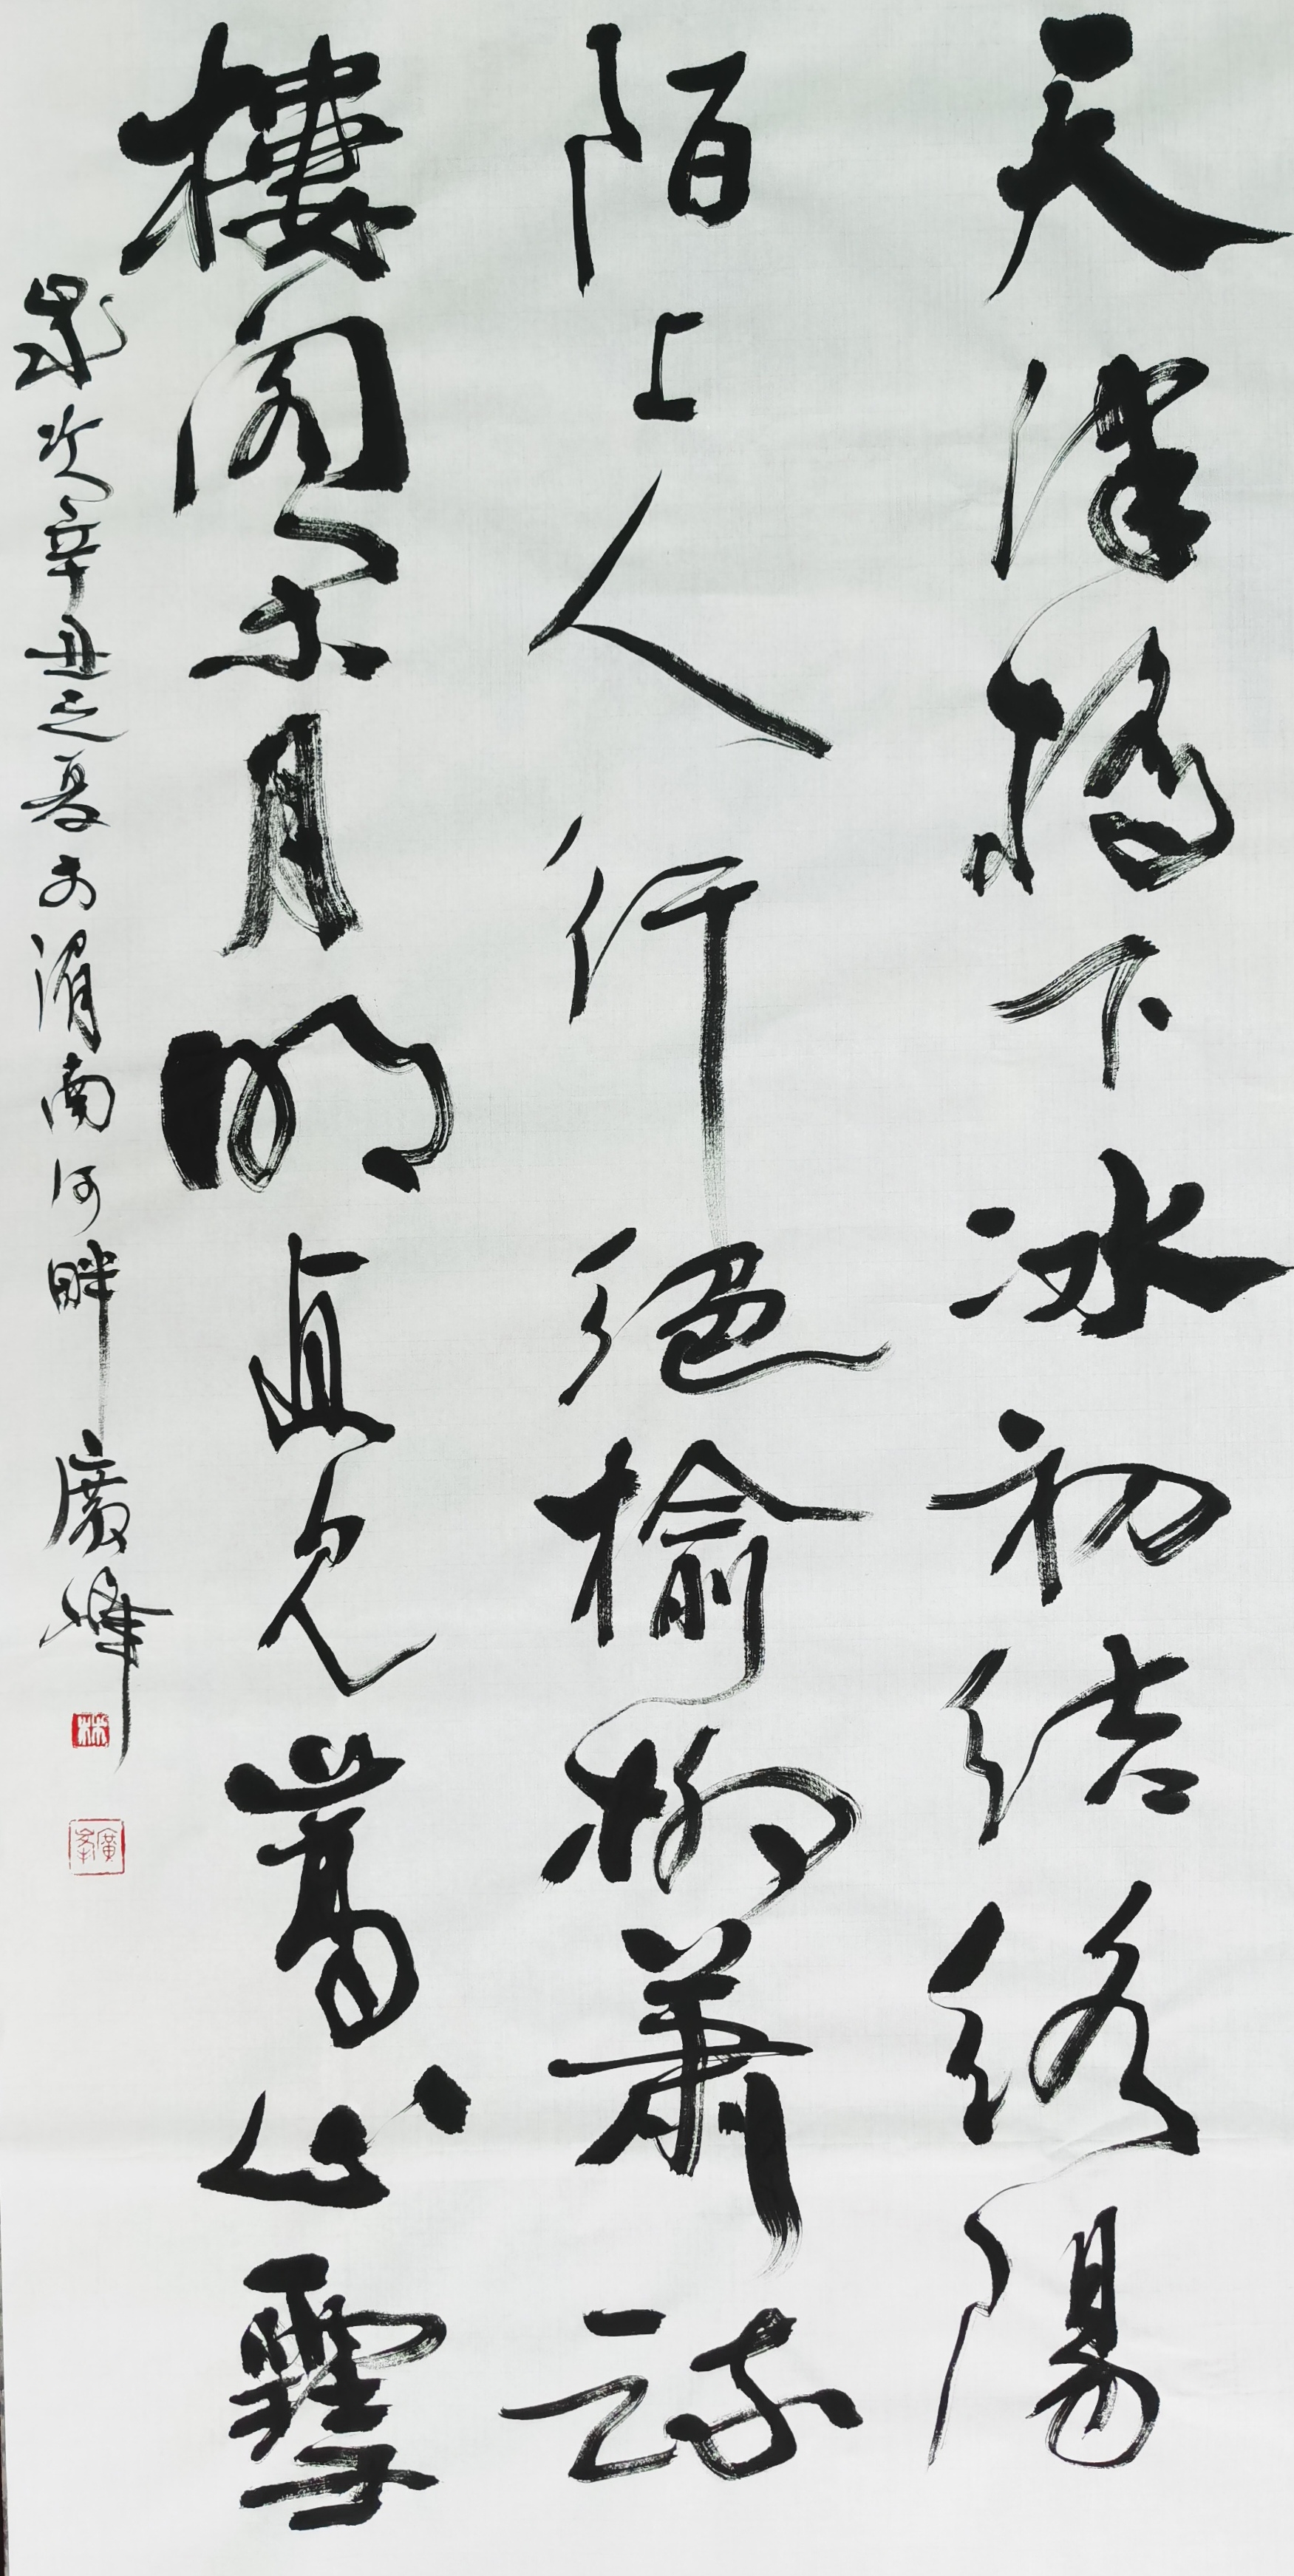 天津橋下冰初結絡陽
陌上人行絕榆柳蕭疏
樓閣閑月明直見嵩山雪
歲次辛丑之夏於渭南河畔廣峰
林
廣峯